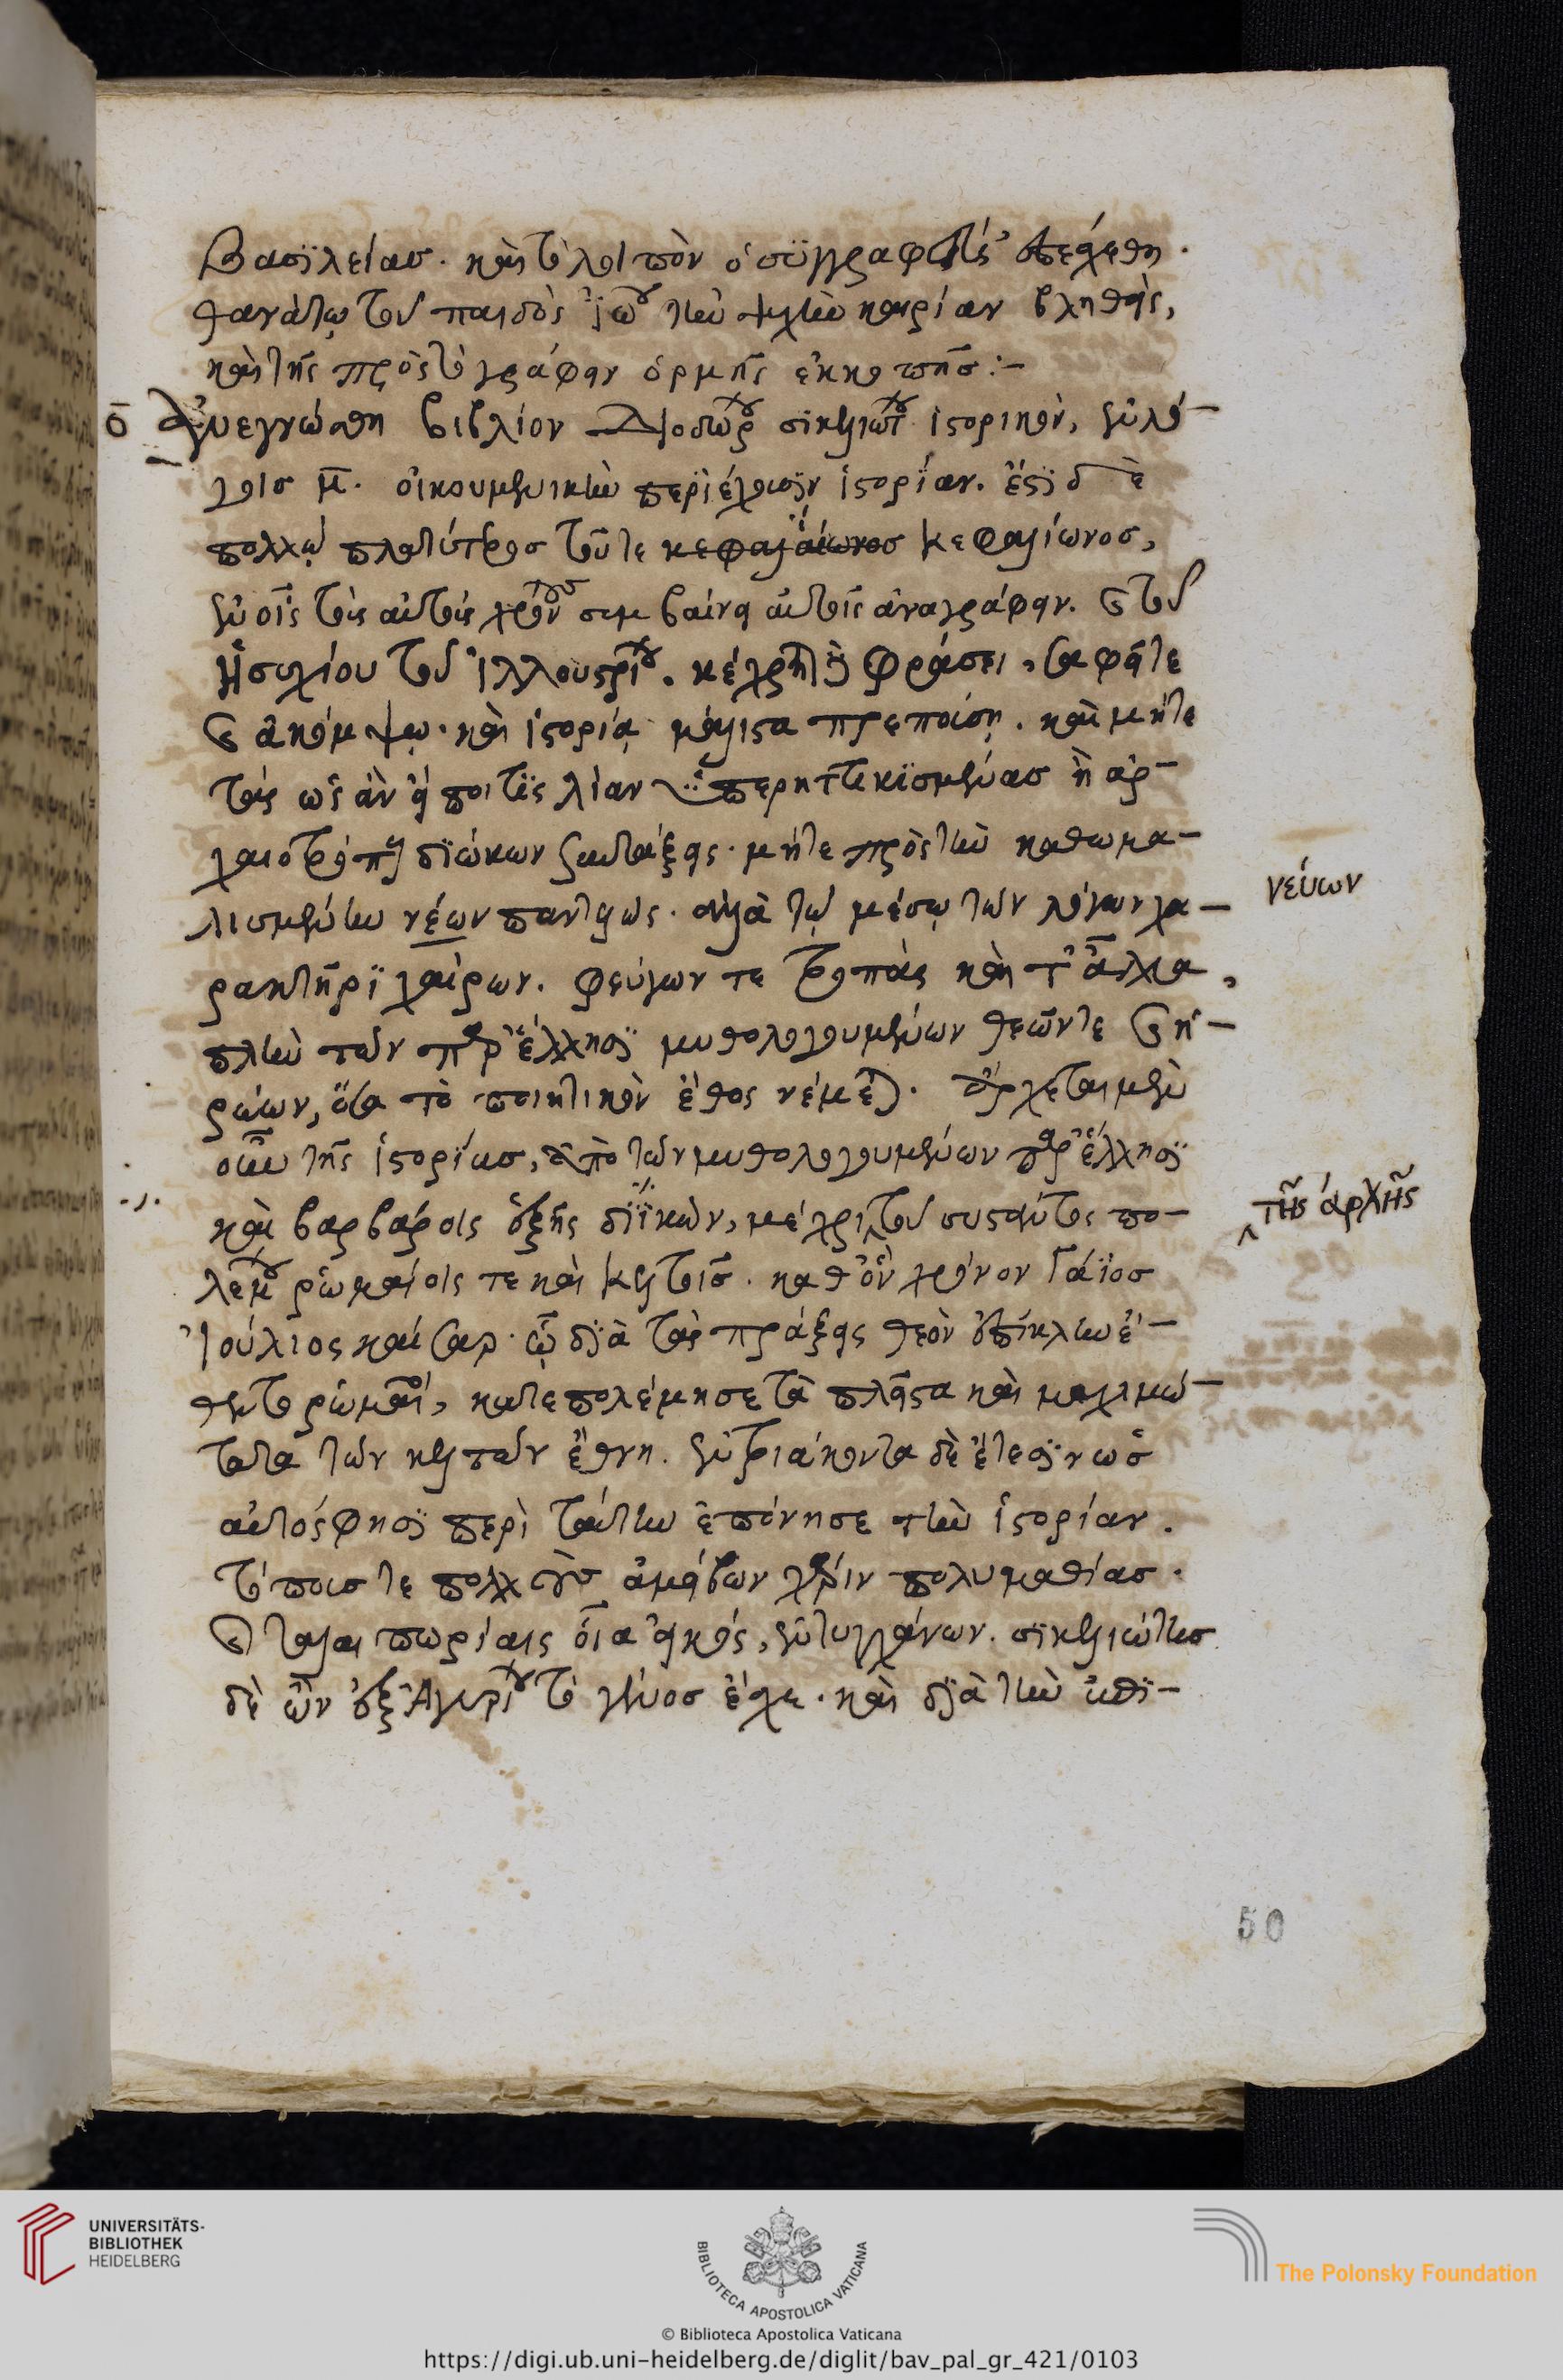 βασϊλείασ. καὶ τὸ λοιπὸν ὁ σϋγγραφεὺς ἀπεσχέθη.
θανάτω τοῦ παιδὸς ἰωου τὴν ψυχὴν καιρίαν βληθεὶς,
καὶ τῆς πρὸς τὸ γράφειν ὁρμῆς ἐκκοπῆσ:-
ο̄ Ἀνεγνώσθη βιβλίον Διοδώρου σικελιώτου ἱστορικὸν, ἐν λό-
γοισ μ̄. οἰκουμενικὴν περϊέχουσϊν ἱστορίαν. ἔστϊ δὲ
πολλῷ πλατύτεροσ τοῦ τε κεφαλαίωνοσ κεφαλίωνοσ,
ἐν οἷς τοὺς αὐτοὺς χρόνουσ συμβαίνει αὐτοῖς ἀναγράφειν. καὶ τοῦ
Ἡσυχίου τοῦ ἰλλουστρίου. κέχρηται φράσει, σαφεῖ τε
καὶ ἀκόμψῳ. καὶ ἱστορίᾳ μάλιστα πρεπούσῃ. καὶ μήτε
τὰς ὡς ἂν εἴποι τϊς λίαν ὑπερηττικϊσμένασ ἢ ἀρ-
χαιοτρόπους διώκων συντάξεις. μήτε πρὸς τὴν καθωμα-
λισμένην νέων παντελῶς. ἀλλὰ τῷ μέσῳ τῶν λόγων χα-
νεύων
ρακτῆρϊ χαίρων. φεύγων τε τροπὰς καὶ τἄλλα,
πλὴν τῶν παρ' ἕλλησϊ μυθολογουμένων θεῶν τε καὶ ἡ-
ρώων, ὅσα τὸ ποιητικὸν ἔθος νέμεται. ἄρχεται μὲν
οὖν τῆς ἱστορίασ, ἀπὸ τῶν μυθολογουμένων παρ' ἕλλησϊ
καὶ βαρβάροις ἐξῆς διϊκὼν, μέχρι τοῦ συστάντος πο-
τῆς ἀρχῆς
λέμου ρωμαίοις τε καὶ κελτοῖσ. καθ' ὃν χρόνον Γάϊοσ
Ἰούλιος καῖσαρ. ᾧ διὰ τὰς πράξεις θεὸν ἐπίκλην ἔ-
θεντο ρωμαῖοι, κατεπολέμησε τὰ πλεῖστα καὶ μαχιμώ-
τατα τῶν κελτῶν ἔθνη. ἐν τριάκοντα δὲ ἔτεσϊν ὡσ
αὐτός φησϊ περὶ ταύτην ἐπόνησε τὴν ἱστορίαν.
τόπουσ τε πολλοὺσ ἀμείβων χάριν πολυμαθίασ.
καὶ ταλαιπωρίαις οἷα εἰκὸς, ἐντυγχάνων. σικελιώτησ
δὲ ὢν ἐξ Ἀγυρίου τὸ γένοσ ἔχει. καὶ διὰ τὴν ἐπϊ-
50
UNIVERSITÄTS-
BIBLIOTHEK
HEIDELBERG
BIBLIOTECA APOSTOLICA VATICANA
The Polonsky Foundation
© Biblioteca Apostolica Vaticana
https://digi.ub.uni-heidelberg.de/diglit/bav_pal_gr_421/0103